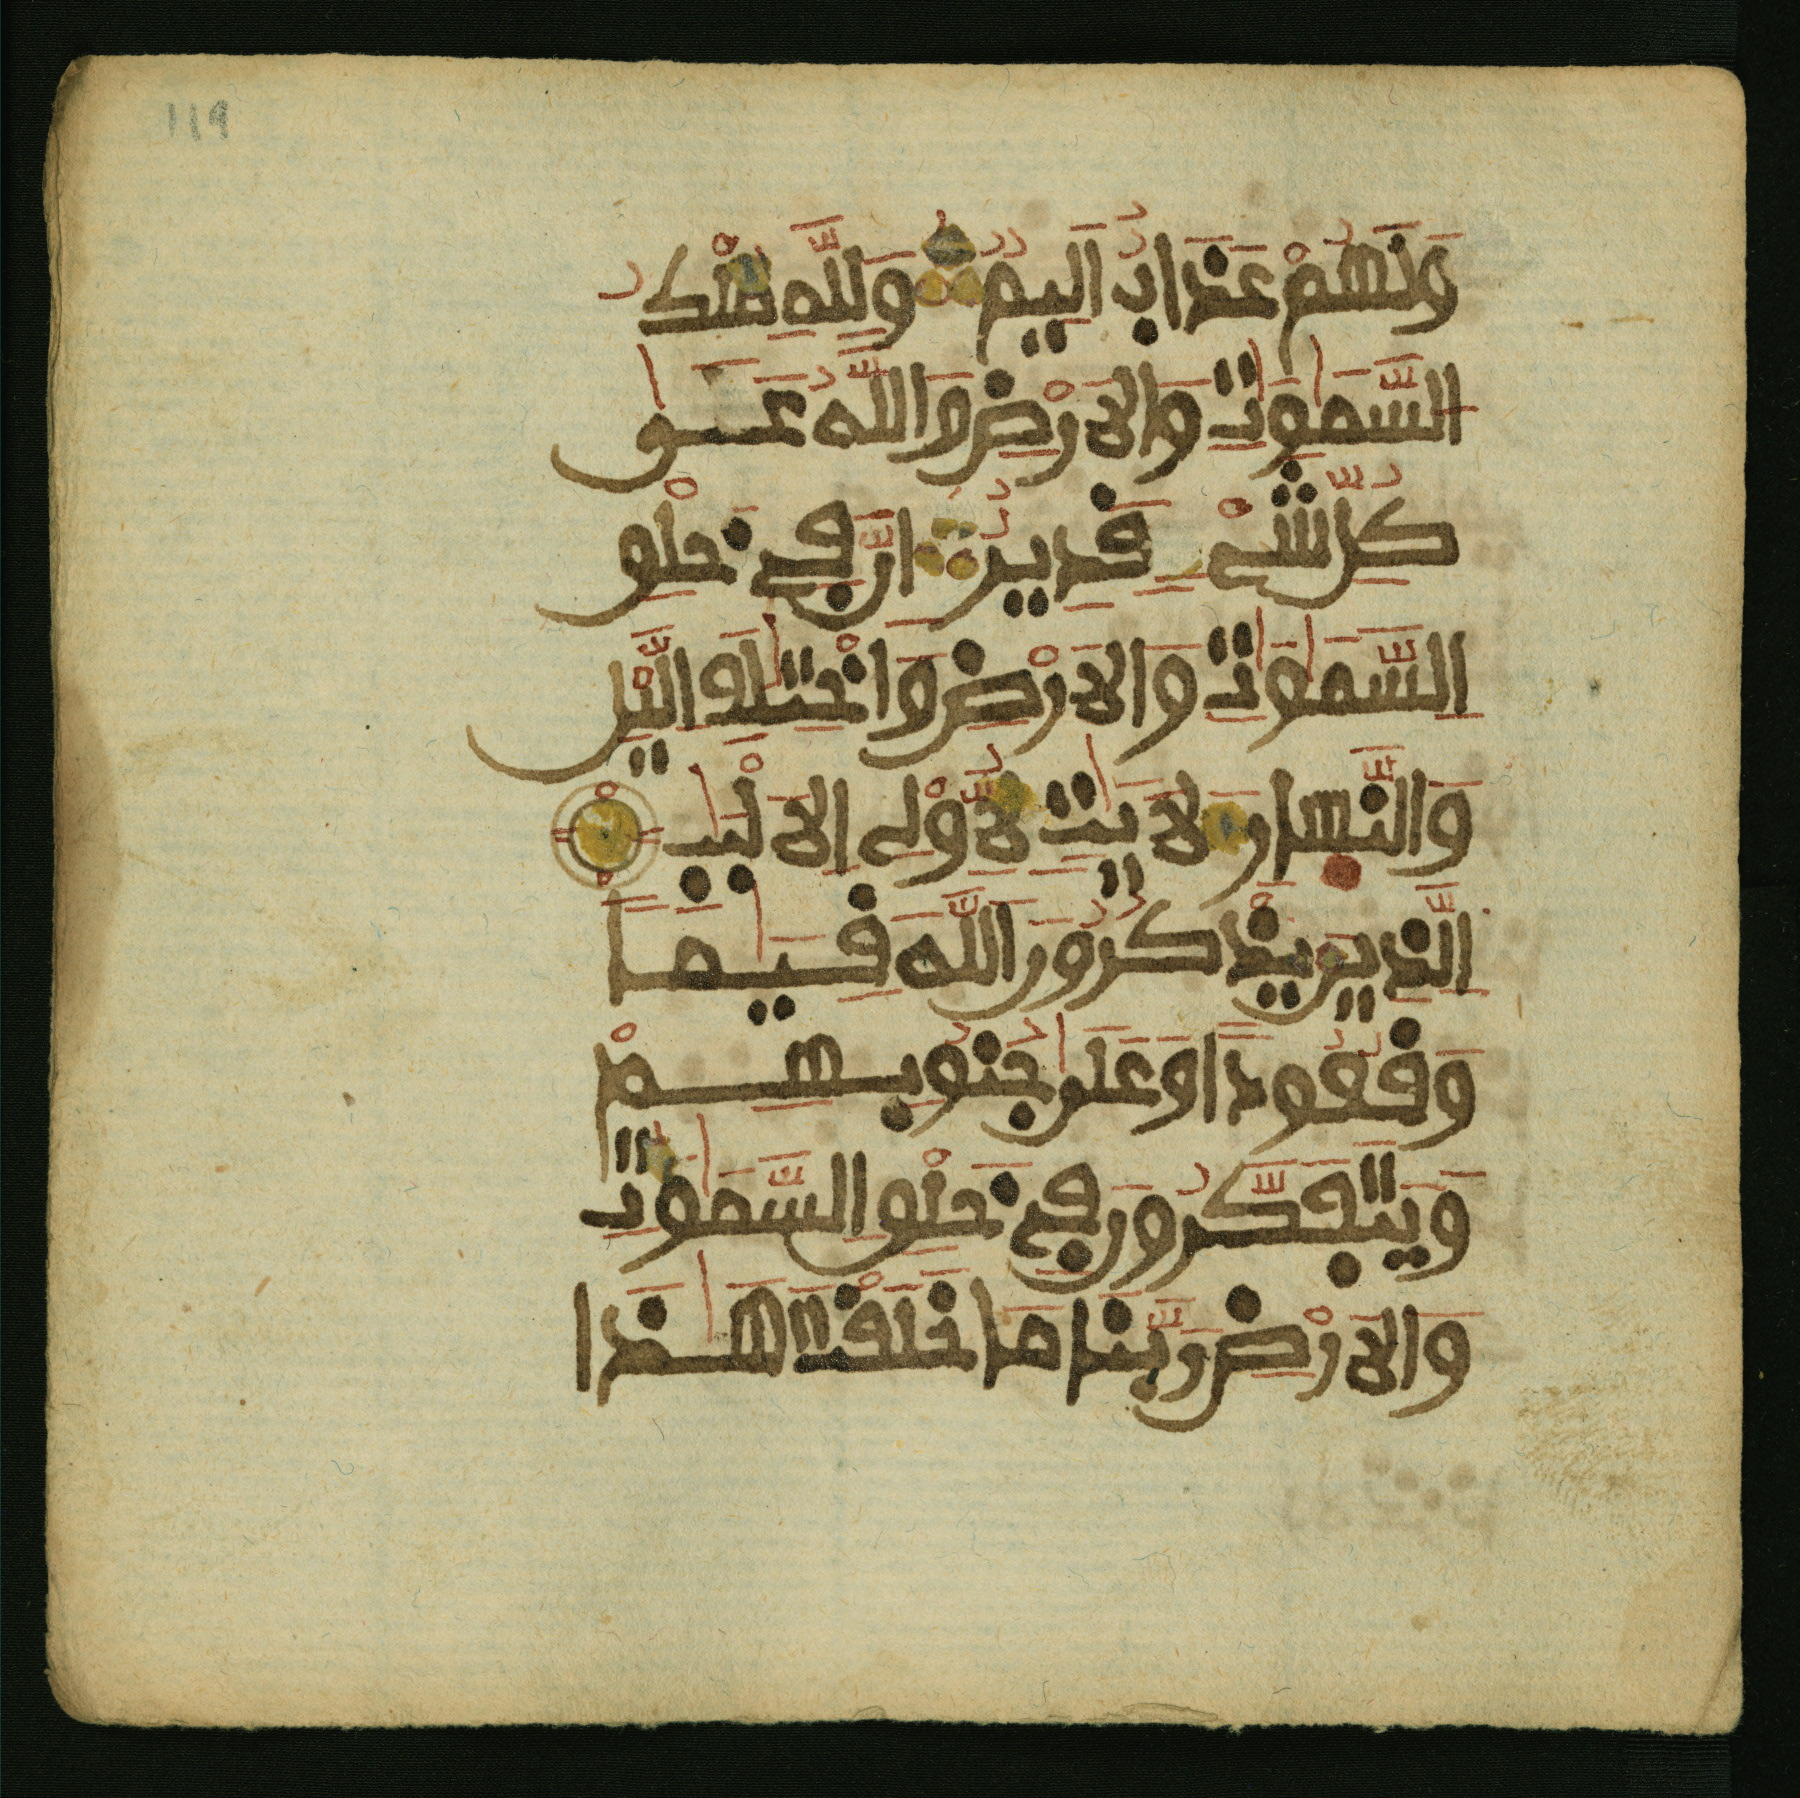 119
وَلَهُمْ عَذَابٌ اَلِيمٌ وَلِلَّهِ مُلْكُ
السَّمَٰوَٰتِ وَالَارْضِ وَاللَّهُ عَلَىٰ
كُلِّ شَےْءٍ قَدِيرٌ اِنَّ فِے خَلْقِ
السَّمَٰوَٰتِ وَالَارْضِ وَاخْتِلَٰفِ اليْلِ
وَالنَّهارِ لَأيَٰتٍ لِّأُوْلِے اِلَالْبَٰبِ
الَّذِينَ يَذْكُرُونَ اللَّهَ قِيَٰماً
وَقُعُوداً اوَعَلَىٰ جُنُوبِهِمْ
وَيَتَفَكَّرُونَ فِے خَلْقِ السَّمَٰوَٰتِ
وَالَارْضِ رَبَّنَا مَا خَلَقْتَ هَٰذَا